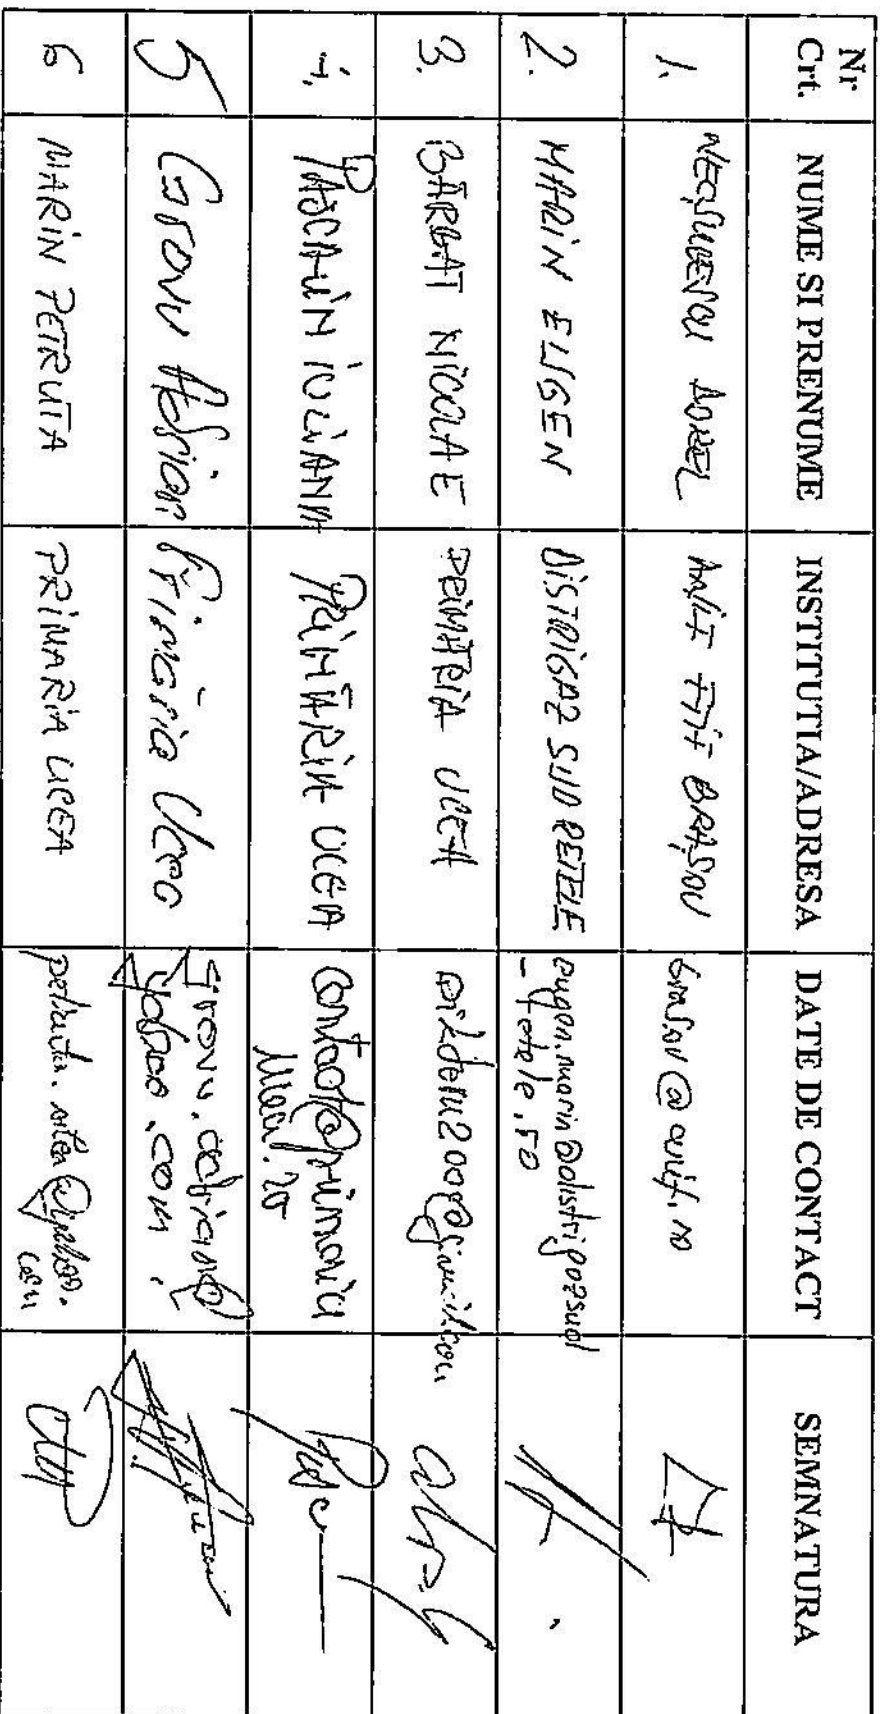 Nr Crt. NUME SI PRENUME INSTITUTIA/ADRESA DATE DE CONTACT SEMNATURA
1. NEGȘULESCU AUREL ANIF FTIF BRAȘOV brasov@anif.ro
2. MARIN EUGEN DISTRIGAZ SUD RETELE eugen.marin@distrigazsud
-retele.ro
3. BĂRBAT NICOLAE PRIMĂRIA UCEA
4. PASCALIN IULIANA PRIMĂRIA UCEA contact@primaria
ucea.ro
5 Grovu Adrian Primăria Ucea grovu.adrian@
yahoo.com
6 MARIN PETRUTA PRIMARIA UCEA